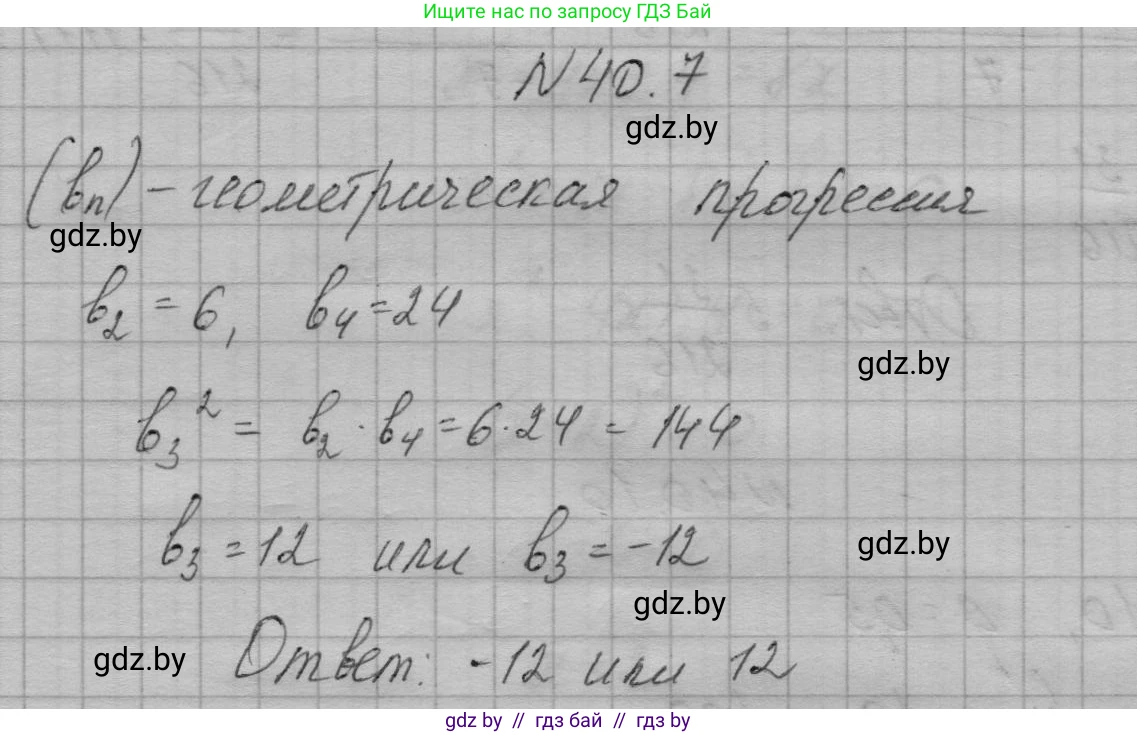 Ищите нас по запросу ГДЗ Бай
N 40.7
gdz.by
(bn) - геометрическая прогрессия
gdz.by
b2 = 6, b4 = 24
gdz.by
b3² = b2 · b4 = 6 · 24 = 144
b3 = 12 или b3 = -12
gdz.by
gdz.by
gdz.by
Ответ: -12 или 12
gdz by // гдз бай // гдз by